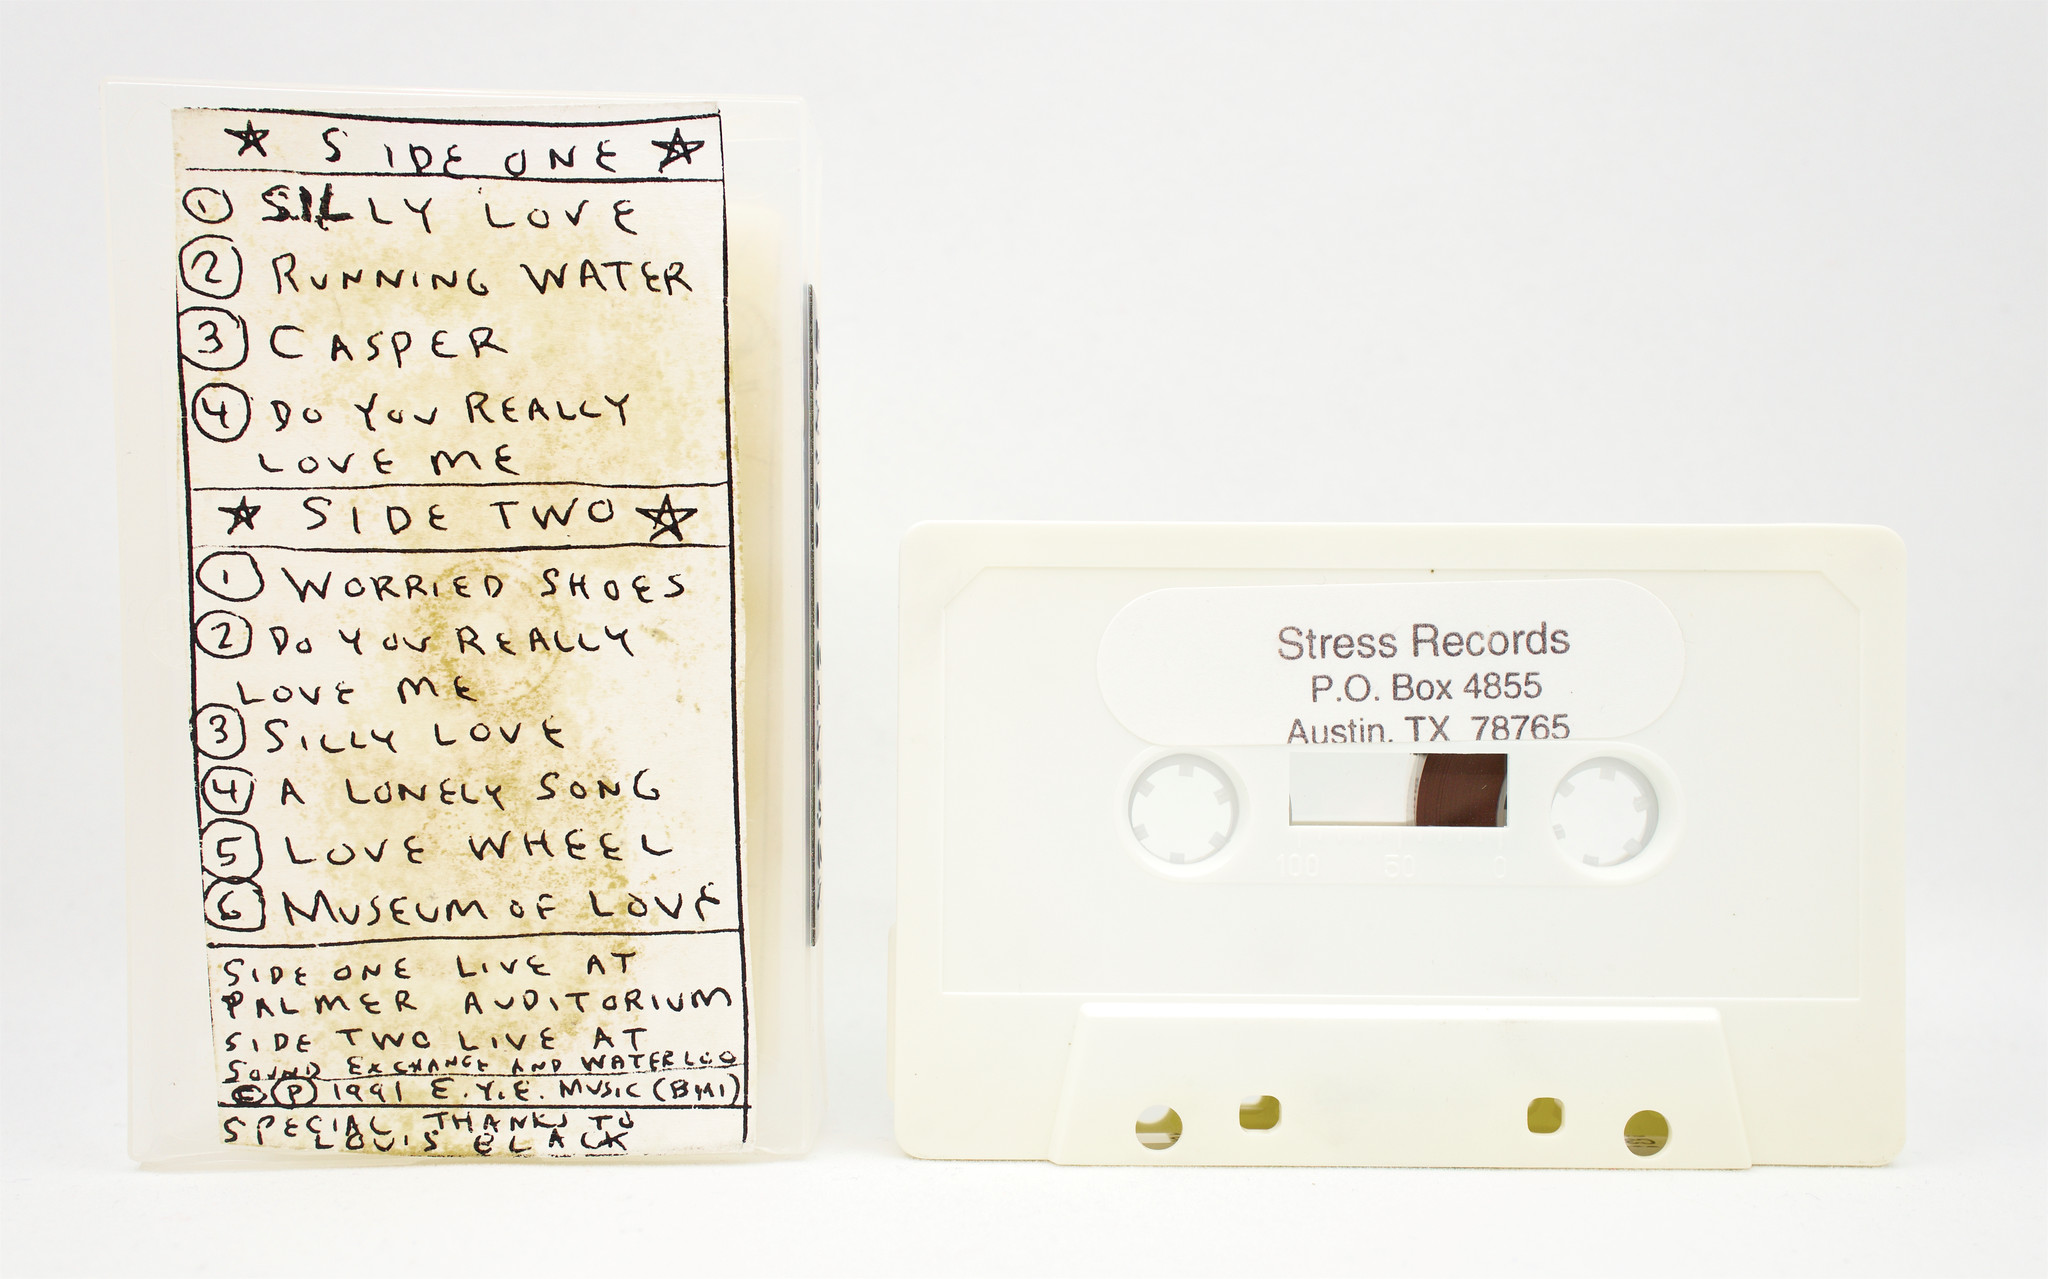 ★ SIDE ONE ★
① SILLY LOVE
② RUNNING WATER
③ CASPER
④ DO YOU REALLY
LOVE ME
★ SIDE TWO ★
① WORRIED SHOES
② DO YOU REALLY
LOVE ME
③ SILLY LOVE
④ A LONELY SONG
⑤ LOVE WHEEL
⑥ MUSEUM OF LOVE
SIDE ONE LIVE AT
PALMER AUDITORIUM
SIDE TWO LIVE AT
SOUND EXCHANGE AND WATERLOO
© ℗ 1991 E.Y.E. MUSIC (BMI)
SPECIAL THANKS TO
LOUIS BLACK
Stress Records
P.O. Box 4855
Austin, TX 78765
100 50 0